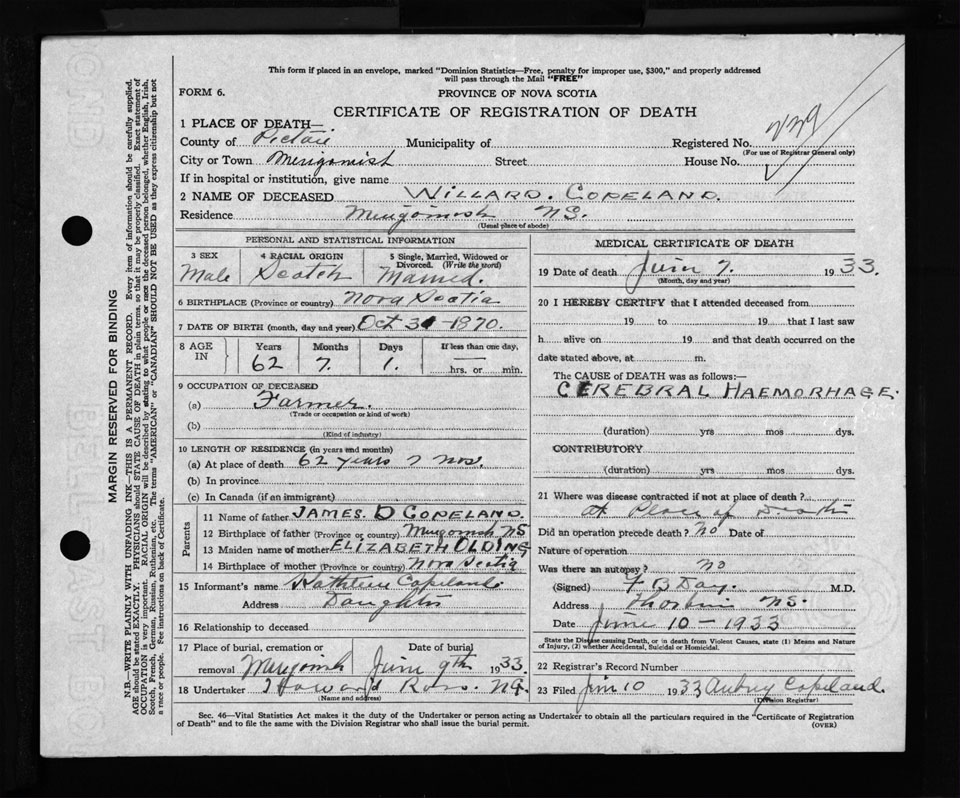 This form if placed in an envelope, marked "Dominion Statistics—Free, penalty for improper use, $300," and properly addressed
will pass through the Mail "FREE"
FORM 6.
PROVINCE OF NOVA SCOTIA
CERTIFICATE OF REGISTRATION OF DEATH
1 PLACE OF DEATH—
County of Pictou Municipality of Registered No.
(For use of Registrar General only)
City or Town Merigomish Street House No.
If in hospital or institution, give name
2 NAME OF DECEASED WILLARD. COPELAND.
Residence Merigomish NS.
(Usual place of abode)
PERSONAL AND STATISTICAL INFORMATION
3 SEX 4 RACIAL ORIGIN 5 Single, Married, Widowed or
Divorced. (Write the word)
Male Scotch Married.
6 BIRTHPLACE (Province or country) Nova Scotia
7 DATE OF BIRTH (month, day and year) Oct 31 1870.
8 AGE IN Years Months Days If less than one day,
62 7. 1. hrs. or min.
9 OCCUPATION OF DECEASED
(a) Farmer.
(Trade or occupation or kind of work)
(b)
(Kind of industry)
10 LENGTH OF RESIDENCE (in years and months)
(a) At place of death 62 years 7 mos.
(b) In province
(c) In Canada (if an immigrant)
Parents
11 Name of father JAMES. D COPELAND.
12 Birthplace of father (Province or country) Merigomish NS
13 Maiden name of mother ELIZABETH OLDING
14 Birthplace of mother (Province or country) Nova Scotia
15 Informant's name Kathleen Copeland.
Address Daughter
16 Relationship to deceased
17 Place of burial, cremation or Date of burial
removal Merigomish June 9th 1933.
18 Undertaker Howard Ross. NG.
(Name and address)
MEDICAL CERTIFICATE OF DEATH
19 Date of death June 7. 1933.
(Month, day and year)
20 I HEREBY CERTIFY that I attended deceased from
19 to 19 that I last saw
h alive on 19 and that death occurred on the
date stated above, at m.
The CAUSE of DEATH was as follows:—
CEREBRAL HAEMORHAGE.
(duration) yrs mos dys.
CONTRIBUTORY
(duration) yrs mos dys.
21 Where was disease contracted if not at place of death?
at Place of Death
Did an operation precede death? no Date of
Nature of operation
Was there an autopsy? no
(Signed) F B Day. M.D.
Address Thorburn NS.
Date June 10 – 1933
State the Disease causing Death, or in death from Violent Causes, state (1) Means and Nature
of Injury, (2) whether Accidental, Suicidal or Homicidal.
22 Registrar's Record Number
23 Filed June 10 1933 Aubrey Copeland.
(Division Registrar)
Sec. 46—Vital Statistics Act makes it the duty of the Undertaker or person acting as Undertaker to obtain all the particulars required in the "Certificate of Registration
of Death" and to file the same with the Division Registrar who shall issue the burial permit.
(OVER)
MARGIN RESERVED FOR BINDING
N.B.—WRITE PLAINLY WITH UNFADING INK—THIS IS A PERMANENT RECORD. Every item of information should be carefully supplied.
AGE should be stated EXACTLY. PHYSICIANS should STATE CAUSE OF DEATH in plain terms, so that it may be properly classified. Exact statement of
OCCUPATION is very important. RACIAL ORIGIN will be described by stating to what people or race the deceased person belonged, whether English, Irish,
Scotch, French, German, Russian, Ruthenian, etc. The terms "AMERICAN" or "CANADIAN" SHOULD NOT BE USED as they express citizenship but not
a race or people. See instructions on back of Certificate.